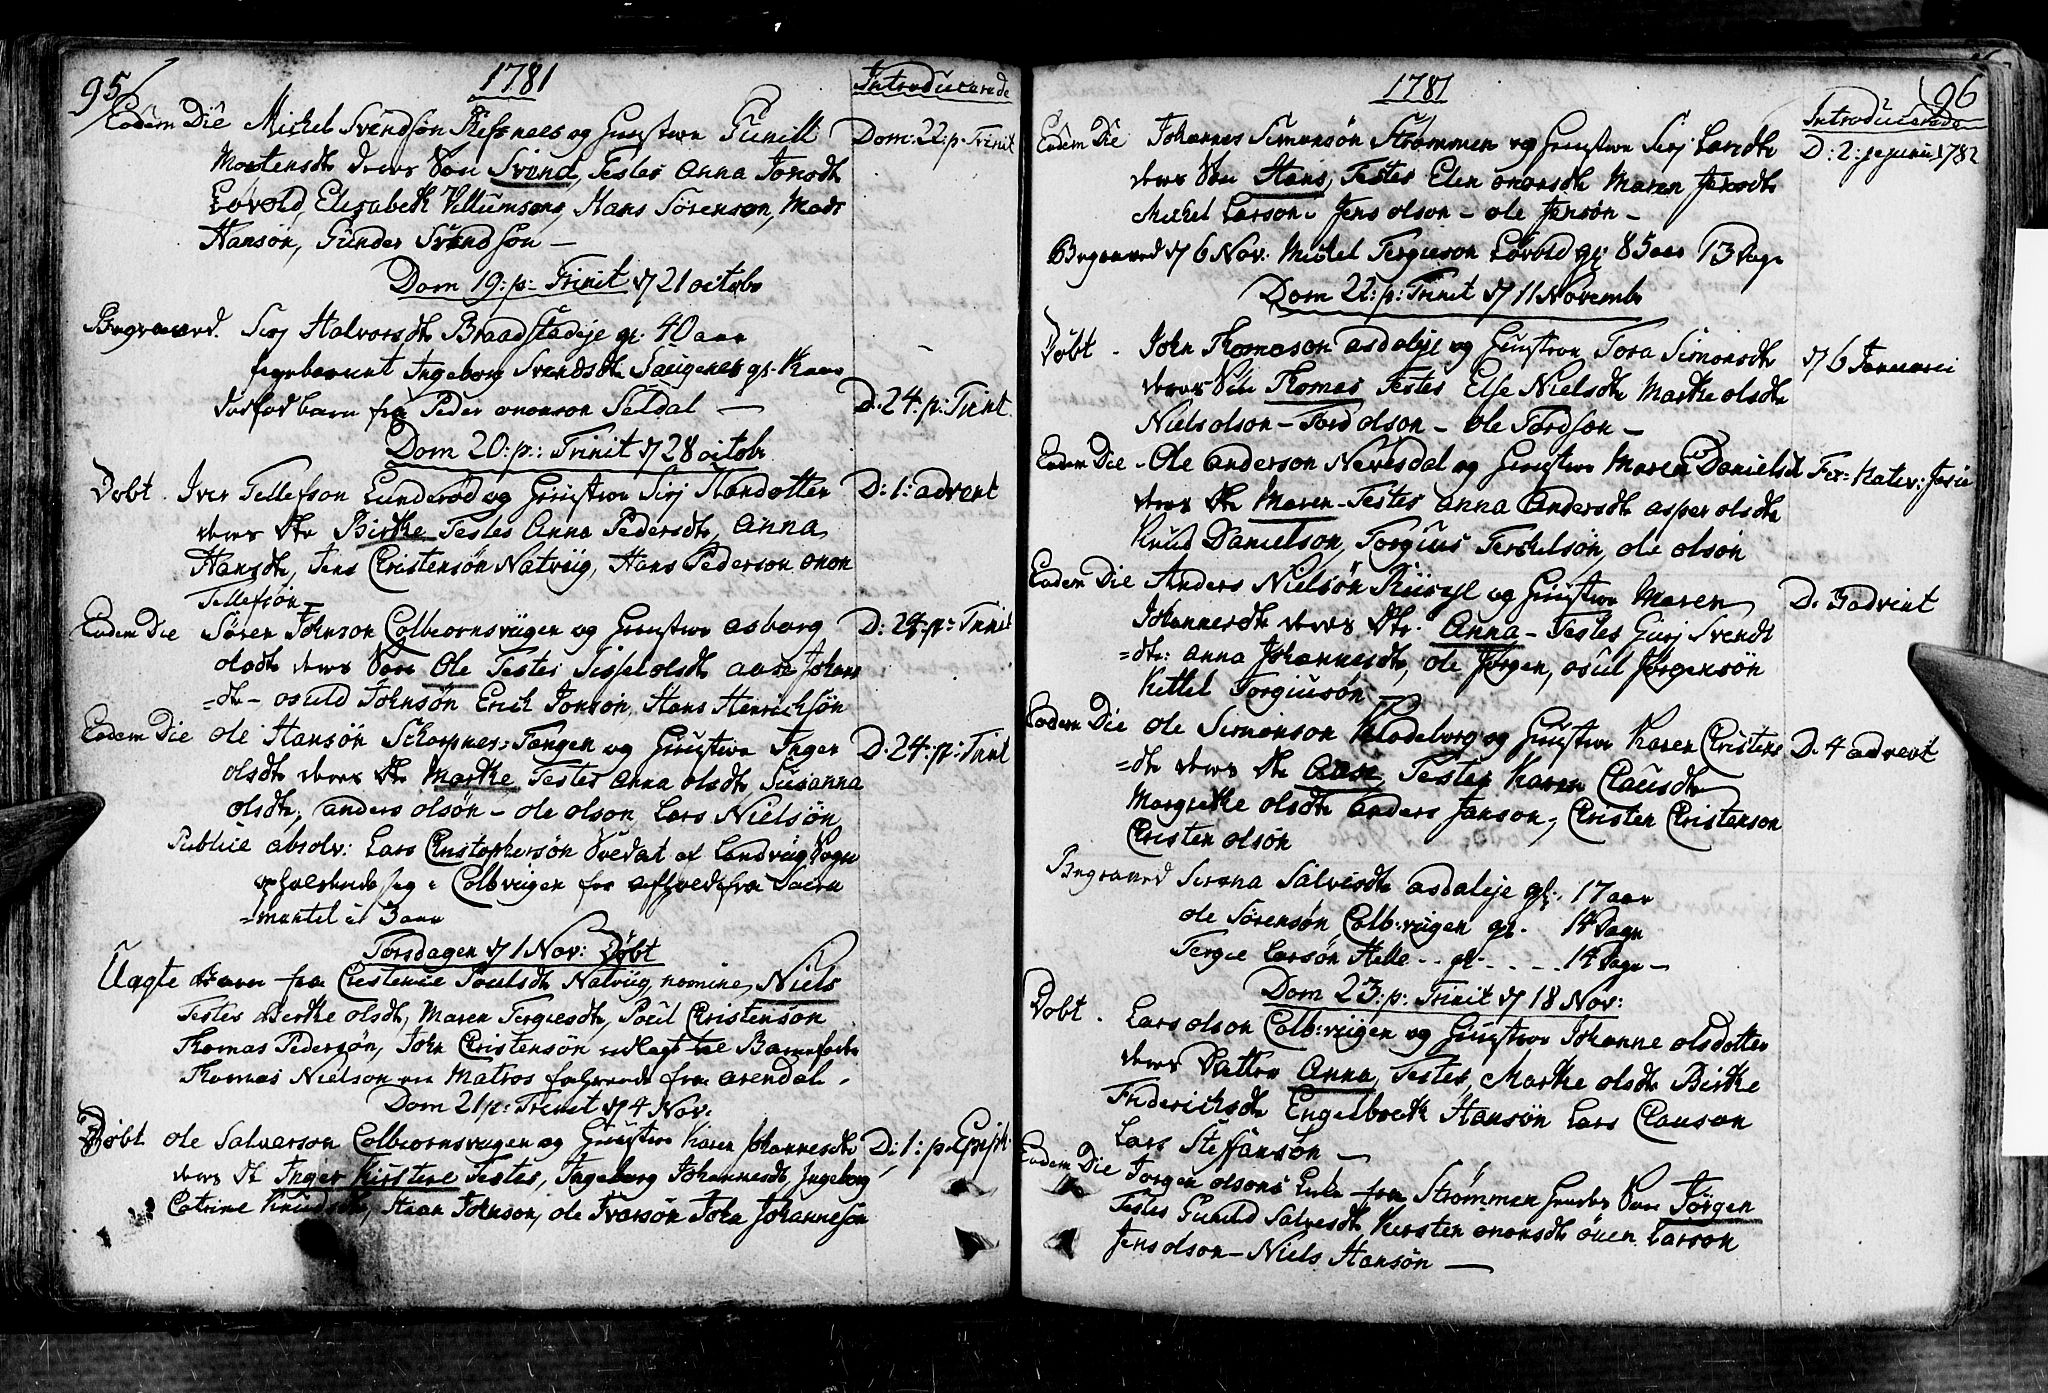 95
1781
Introducerede
Eodem Die Michel Svendsøn Resnees og Hustroe Gunill Dom: 22: p: Trinit
Mortensdt deres Søn Svend, Testes Anna Jonsdt
Løvold, Elisabeth Villumsens, Hans Sørenson, Mads
Hansøn, Gunder Svendsøn —
Dom 19: p: Trinit d 21 octobr
Begraved. Sirj Halvorsdt Braadstadeje gl: 40 aar
Ingeborg Svendsdt Saugenes gl.
dødfød barn fra Peder ononson Seldal — D. 24: p: Trinit.
Dom 20: p: Trinit d 28 octobr
Døbt. Iver Tellefson Lunderød og Hustroe Sirj Handotter D: 1: advent
deres Dtr Birthe Testes Anna Pedersdt, Anna
Hansdt, Jens Christensøn Natviig, Hans Pederson onon
Tellefsøn —
Eodem Die Søren Johnson Colbeornsviigen og Hustroe asborg D: 24: p: Trinit
olsdt deres Søn Ole Testes Sissel olsdt aase Johans
=dt – osuld Johnsøn Erich Jonsøn, Hans Henrichsøn
Eodem Die ole Hansøn Scharpnes=Tangen og Hustroe Inger D. 24: p: Trinit
olsdt deres Dtr Marthe Testes anna olsdt Susanna
olsdt, anders olsøn – ole olson, Lars Nielsøn
Publice absolv: Lars Christophersøn Soldat af Landviig Sogn
opholdende sig i Colbviigen for afhold fra Sacra
=mentet i 3 aar
Torsdagen d 1 Nov: Døbt
Uægte Barn fra Christence Poulsdt Natviig, nomine, Niels
Testes Berthe olsdt, Maren Tergiesdt, Poul Christensøn
Thomas Pedersøn, John Christensøn udlagt til Barnefader
Thomas Nielson en Matros farende fra arendal.
Dom 21 p: Trinit d 4 Nov:
Døbt ole Salvarson Colbeornsviigen og Hustroe Karen Johannesdt D: 1: p. Epiph.
deres Dt Inger Kirstine Testes, Ingeborg Johannesdt, Ingeborg
Catrine Knudsdt, Haan Johnson, ole Ivarsøn John Johannesøn
96
1781
Introducerede
Eodem Die Johannes Simonsøn Strømmen og Hustroe Sirj Larsdt D: 2: jejunii 1782
deres Søn Hans, Testes Elen ononsdt Maren Jensdt
Michel Larson – Jens olson – ole Jensøn –
Begraved d 6 Nov: Michel Tergieson Løvold gl: 85 aar 13 Dage
Dom 22: p: Trinit d 11 Novembr
Døbt. John Thomason asdaleje og Hustroe Tora Simonsdt d 6 Januarii
deres Søn Thomas Testes Else Nielsdt Marthe olsdt
Niels olson – Tord olson – ole Tordson –
Eodem Die Ole anderson Nevesdal og Hustroe Maren Danielsd Fer: Nativ: Jesu
deres Dtr Maren – Testes anna Andersdt asper olsdt
Knud Danielson, Torgius Terkelsøn, ole olson
Eodem Die Anders Nielsøn og Hustroe Maren D. 3 advent
Johannesdt deres Dtr. Anna – Testes Gurj Svends
=dtr: anna Johannesdt, ole Jørgen, osul Jørgensøn
Kittel Torgiusøn –
Eodem Die ole Simonson Klodeborg og Hustroe Karen Christens D. 4 advent
=dt deres Dtr Aase Testes Karen Clausdt
Margrethe olsdt anders Janson, Christen Christenson
Christen olsøn
Begraved Serena Salvesdt asdaleje gl: 17 aar
ole Sørensøn Colb:viigen gl. 14 Dage
Tergie Larsøn Helle – gl – – – 14 Dage –
Dom 23: p: Trinit d 18 Nov:
Døbt. Lars olson Colb:viigen og Hustroe Johanne olsdotter
deres Datter Anna, Testes, Marthe olsdt Birthe
Friderichsdt Engelbreth Hansøn Lars Clauson
Lars Steffansøn —
Eodem Die Jørgen olsons Enke fra Strømmen hendes Søn Jørgen
Testes Gunild Salvesdt, Kirsten ononsdt öuen Larson
Jens olson – Niels Hansøn —